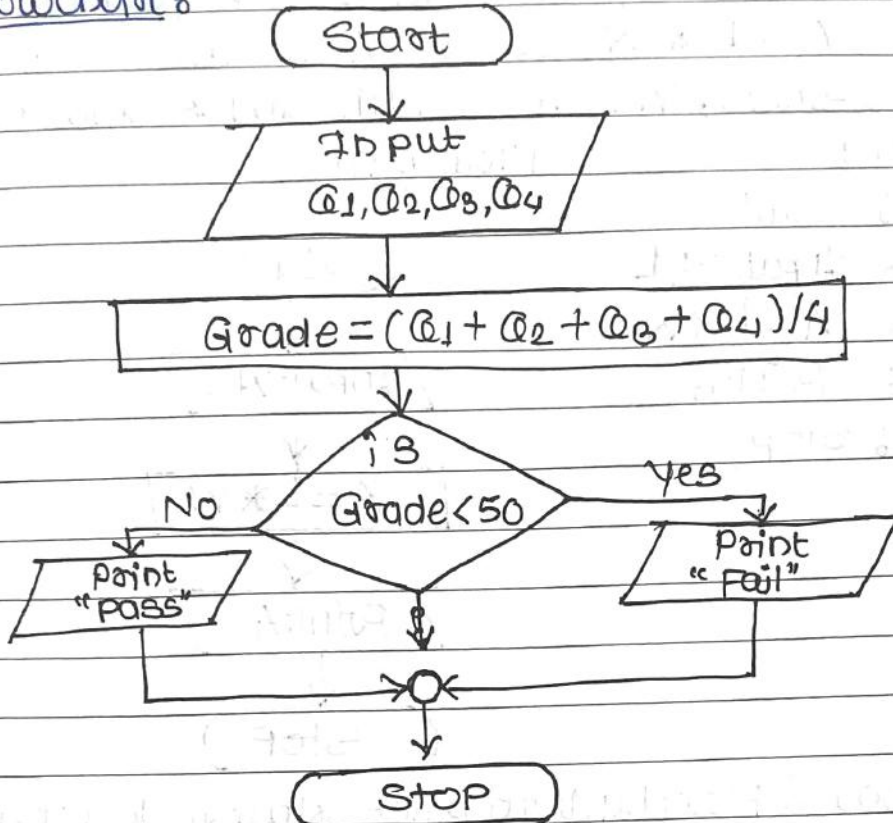 Start
Input
Q1, Q2, Q3, Q4
Grade = (Q1 + Q2 + Q3 + Q4)/4
is
Grade<50
No
Yes
Print
"PASS"
Print
"Fail"
STOP